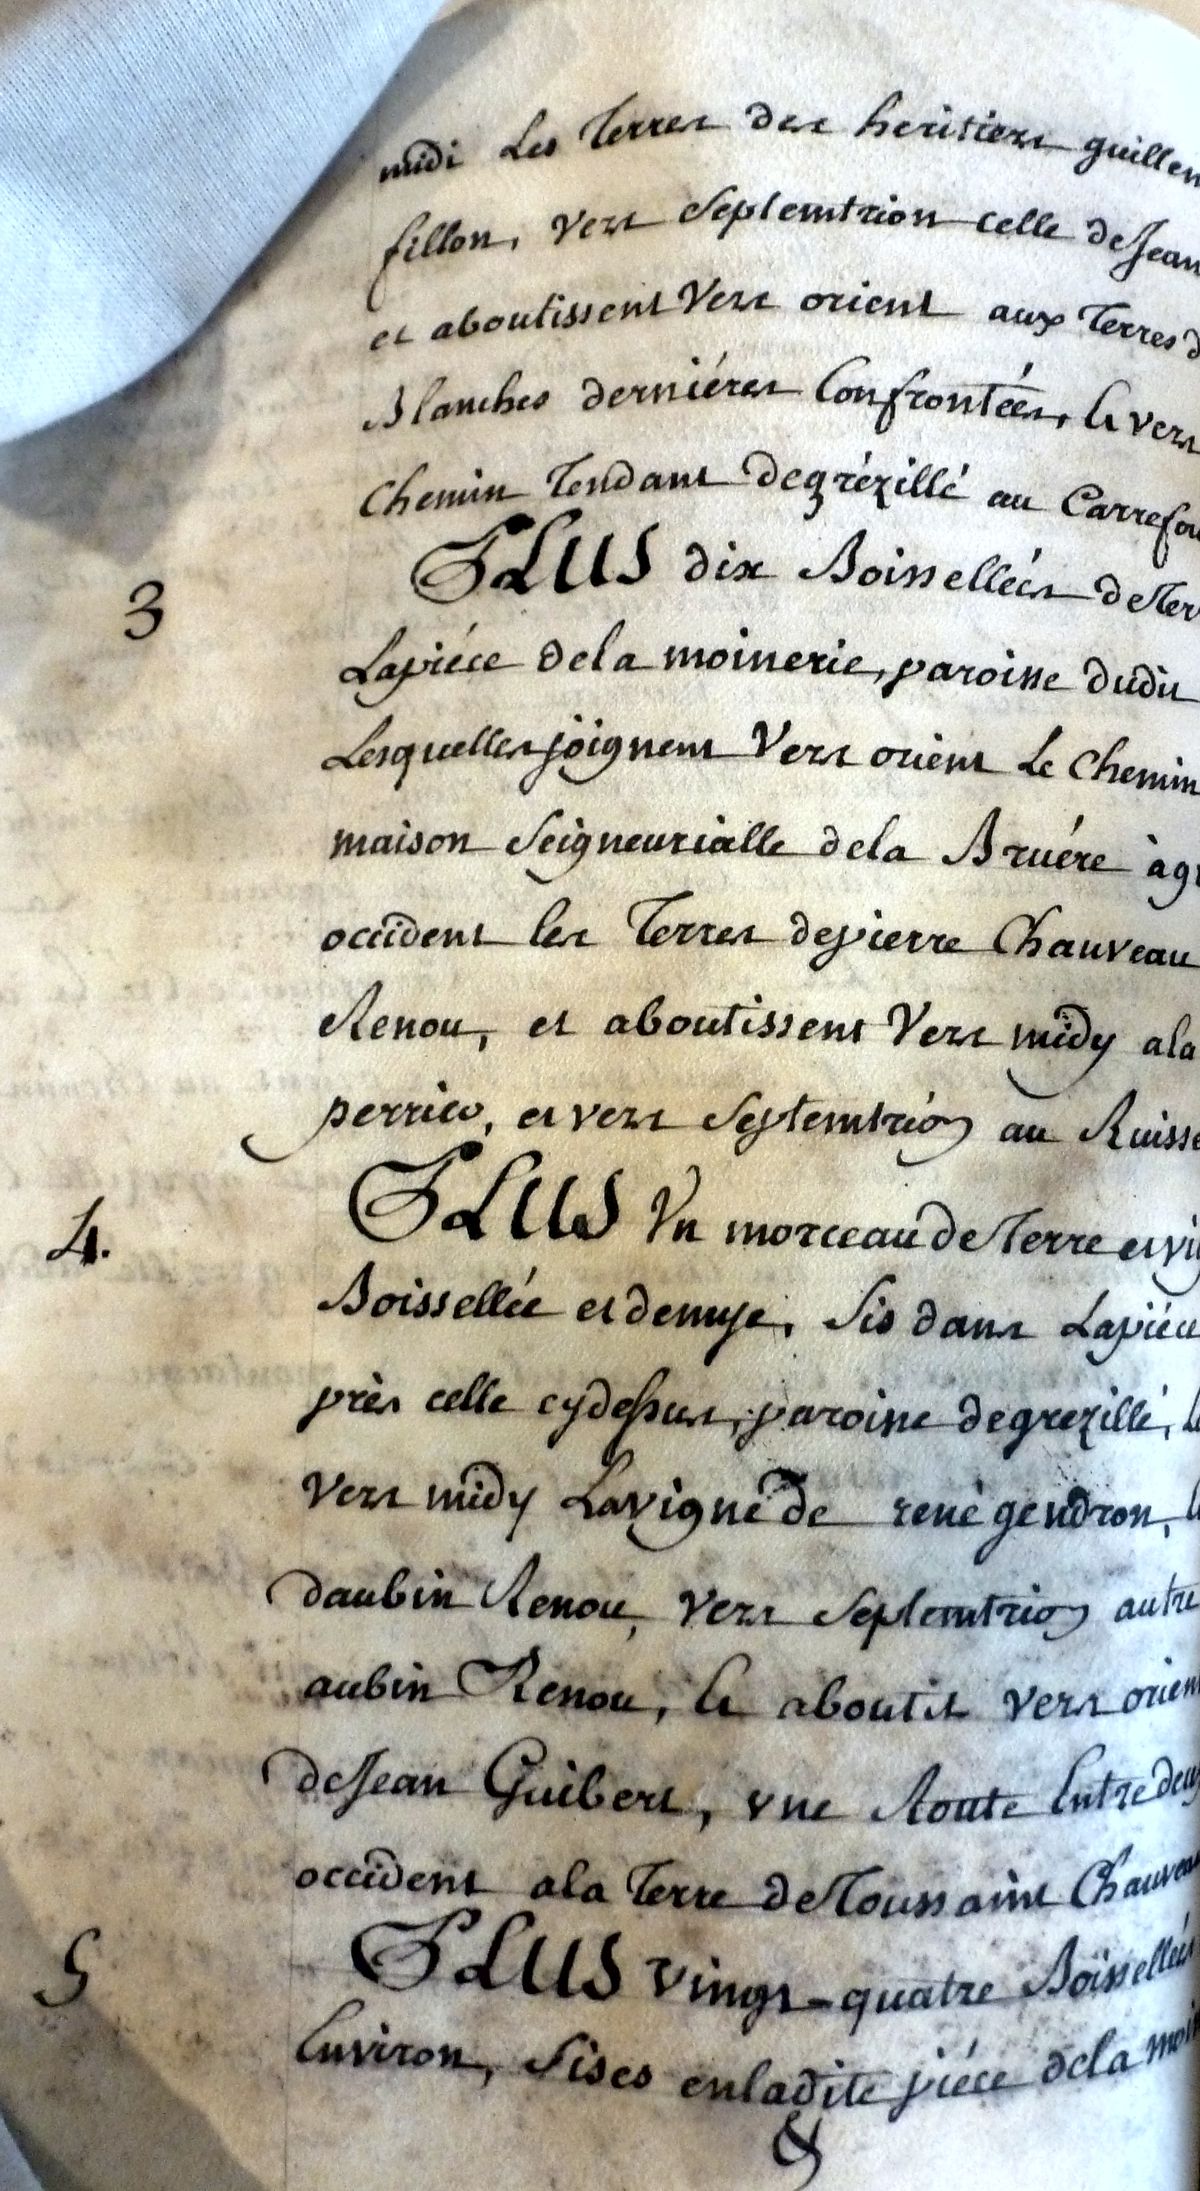 midi Les Terres des heritiers guillem
fillon, vers Septemtrion celle de Jean
et aboutissent Vers orient aux Terres d
Blanches derniéres Confrontées, & vers
Chemin Tendant degrézillé au Carrefou
3 PLUS dix Boisselleés de Ter
Lapiéce dela moinerie, paroisse dudit
Lesquelles joignent Vers orient Le Chemin
maison Seigneurialle dela Bruére àgr
occident les Terres depierre Chauveau
Renou, et aboutissent Vers midy ala
perrico, et vers Septemtrion au Ruisse
4. PLUS Vn morceau de Terre et vi
Boissellée et demye, Sis dans Lapiéce
près celle cydessus, paroisse degrezillé, le
Vers midy Lavigne de rené gendron, le
daubin Renou, vers Septemtrion autre
aubin Renou, & aboutit vers orient
de Jean Guibert, vne Route Entre deux
occident ala Terre de Toussaint Chauveau
5 PLUS vingt-quatre Boisselleés
Environ, Sises enladite piéce dela moi
&